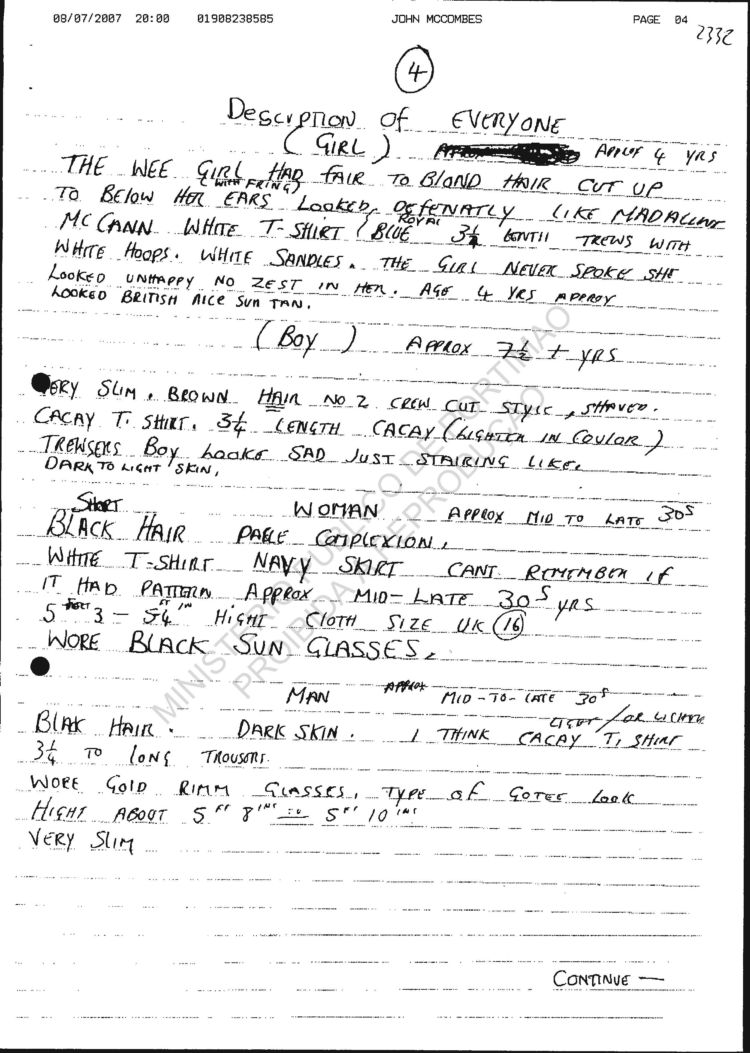 08/07/2007 20:00 01908238585 JOHN MCCOMBES PAGE 04
2332
4
DESCRIPTION OF EVERYONE
(GIRL) APPROX 4 YRS
THE WEE GIRL HAD FAIR TO BLOND HAIR CUT UP
(WITH FRING)
TO BELOW HER EARS LOOKED DEFENATLY LIKE MADALINE
ROYAL
MCCANN WHITE T-SHIRT (BLUE 3/4 LENTH TREWS WITH
WHITE HOOPS. WHITE SANDLES. THE GIRL NEVER SPOKE SHE
LOOKED UNHAPPY NO ZEST IN HER. AGE 4 YRS APPROX
LOOKED BRITISH NICE SUN TAN.
(BOY) APPROX 7 1/2 + YRS
VERY SLIM. BROWN HAIR NO 2 CREW CUT STYLE, SHAVED.
CACAY T. SHIRT. 3/4 LENGTH CACAY (LIGHTER IN COULOR)
TREWSERS BOY LOOKS SAD JUST STAIRING LIKE.
DARK TO LIGHT SKIN,
SHORT WOMAN APPROX MID TO LATE 30S
BLACK HAIR PAELE COMPLEXION,
WHITE T-SHIRT NAVY SKIRT CANT REMEMBER IF
IT HAD PATTERN APPROX MID-LATE 30S YRS
5 FEET 3 - 5 FT 4 IN HIGHT CLOTH SIZE UK 16
WORE BLACK SUN GLASSES.
MAN APPROX MID-TO-LATE 30S
LIGHT / OR LIGHTER
BLAK HAIR. DARK SKIN. I THINK CACAY T, SHIRT
3/4 TO LONG TROUSORS.
WORE GOLD RIMM GLASSES, TYPE OF GOTEE LOOK
HIGHT ABOUT 5 FT 8 INS TO 5 FT 10 INS
VERY SLIM
CONTINUE —
MINISTERIO PUBLICO DE PORTIMAO
PROIBIDA A REPRODUCAO